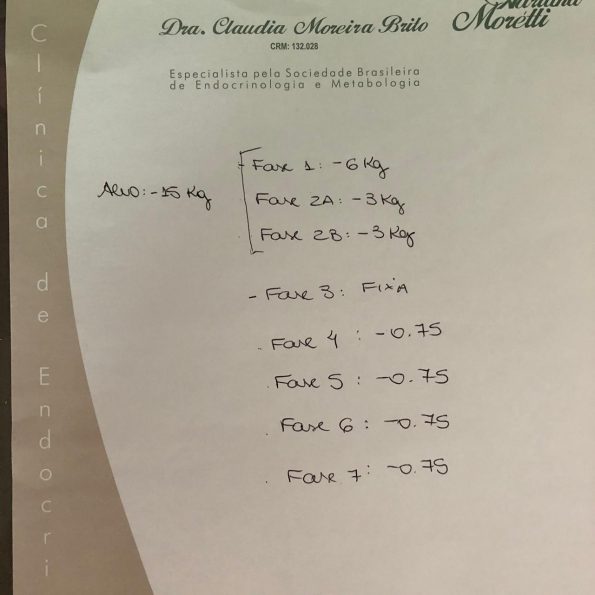 Dra. Claudia Moreira Brito
CRM: 132.028
Morétti
Especialista pela Sociedade Brasileira
de Endocrinologia e Metabologia
Clínica de Endocri
Alvo: -15 Kg
- Fase 1: -6 Kg
Fase 2A: -3 Kg
Fase 2B: -3 Kg
- Fase 3: FIXA
. Fase 4 : -0.75
. Fase 5 : -0.75
. Fase 6 : -0.75
. Fase 7 : -0.75